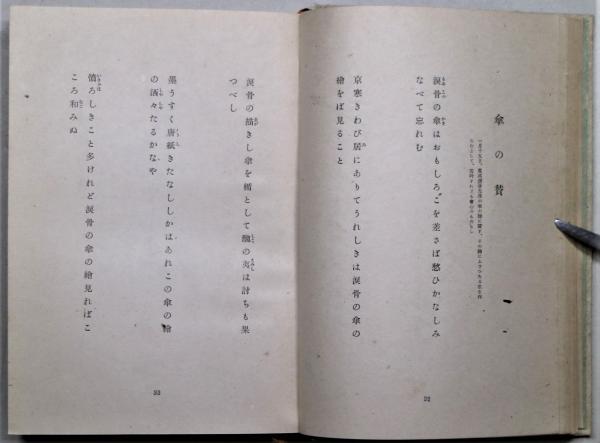 傘の賛
涙骨の傘はおもしろこを差さば愁ひかなしみ
なべて忘れむ
京寒きわび居にありてうれしきは涙骨の傘の
繪をば見ること
92
涙骨の描きし傘を楯として醜の夷は討ちも果
つべし
墨うすく唐紙きたなししかはあれこの傘の繪
の洒々たるかなや
憤ろしきこと多けれど涙骨の傘の繪見ればこ
ころ和みぬ
93